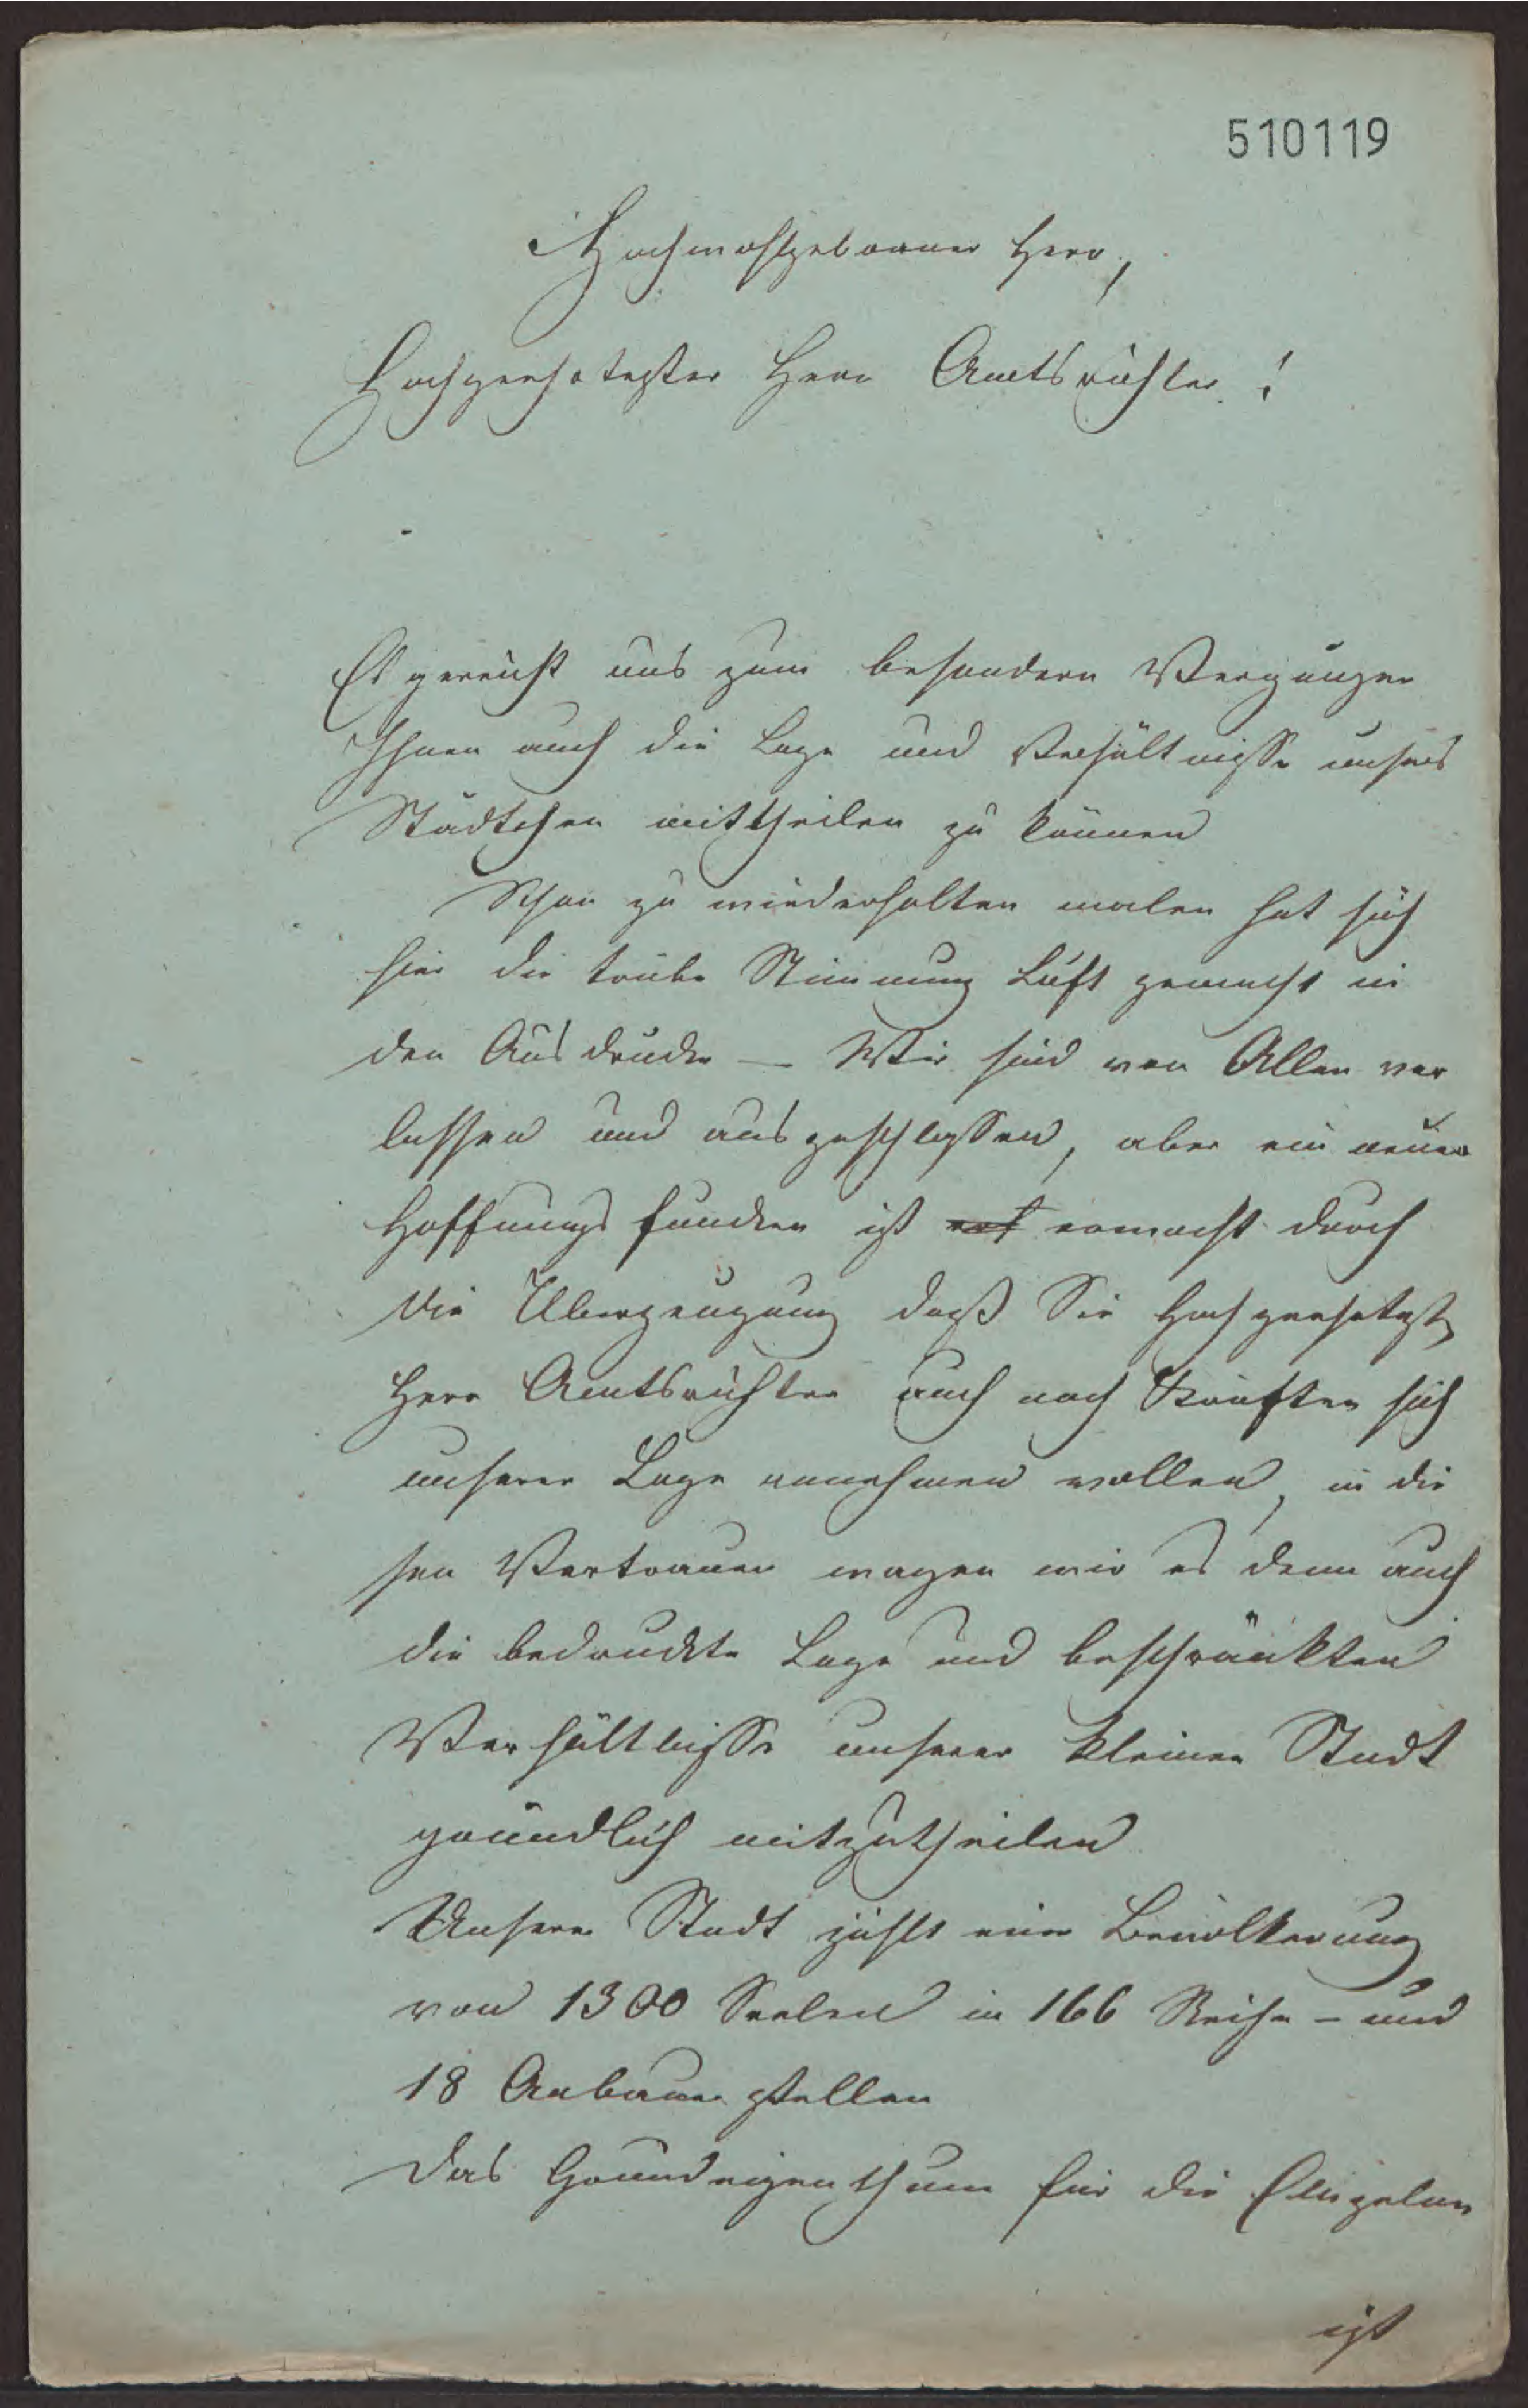 510119
Hochwohlgeborner Herr,
Hochgeehrtester Herr Amtsrichter!
Es gereicht uns zum besondern Vergnügen
Ihnen auch die Lage und Verhältnisse unsers
Städtchen mittheilen zu können
Schon zu wiederholten malen hat sich
hier die trübe Stimmung Luft gemacht in
den Ausdrucke — Wir sind von Allen ver
lassen und ausgeschlossen, aber ein neuer
Hoffnungs funcken ist erwacht durch
die Überzeugung daß Sie Hochgeehrtest
Herr Amtsrichter auch nach Kräften sich
unserer Lage annehmen wollen, in die
sen Vertrauen wagen wir es denn auch
die bedruckte Lage und beschränkten
Verhältnisse unserer kleinen Stadt
gründlich mitzutheilen
Unsere Stadt zählt eine Bevölkerung
von 1300 Seelen in 166 Reihe- und
18 Anbauer stellen
Das Grundeigenthum für die Einzelnen
ist